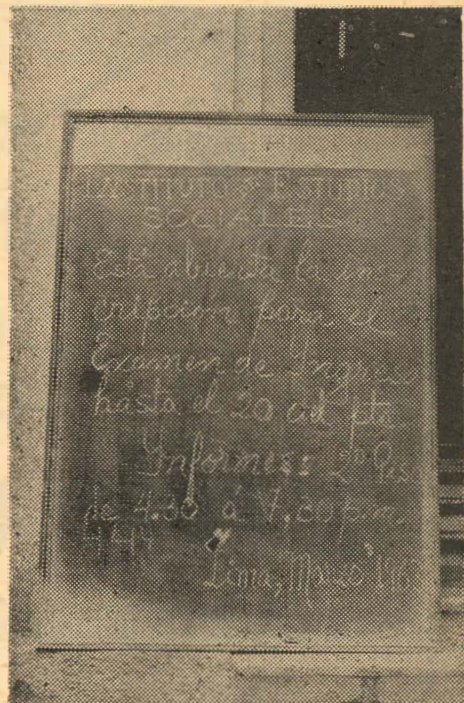 INSTITUTO DE ESTUDIOS
SOCIALES
Está abierta la ins-
cripción para el
Examen de Ingreso
hasta el 20 del pte.
Informes: 2º Piso
de 4.30 á 7.30 p.m.
Lima, Marzo